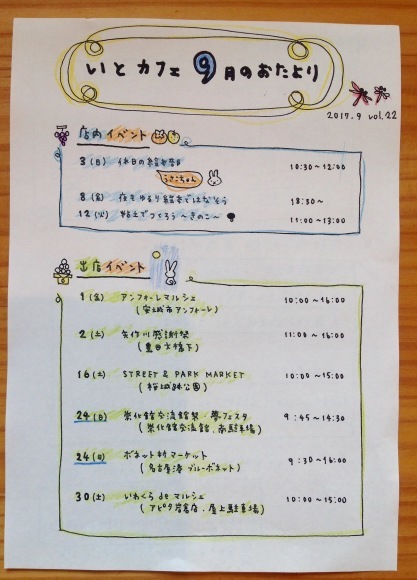 いとカフェ 9月のおたより
2017.9 vol.22
店内イベント
3(日) 休日の絵本部 10:30~12:00
うさこちゃん
8(金) 夜もゆるり絵本ではなそう 18:30~
12(火) 粘土でつくろう~きのこ~ 11:00~13:00
出店イベント
1(金) アンフォーレマルシェ 10:00~16:00
(安城市アンフォーレ)
2(土) 矢作川感謝祭 11:00~16:00
(豊田大橋下)
16(土) STREET & PARK MARKET 10:00~15:00
(桜城址公園)
24(日) 崇化館交流館祭・夢フェスタ 9:45~14:30
(崇化館交流館、南駐車場)
24(日) ボネット村マーケット 9:30~16:00
(名古屋港 ブルーボネット)
30(土) いわくら de マルシェ 10:00~15:00
(アピタ岩倉店・屋上駐車場)